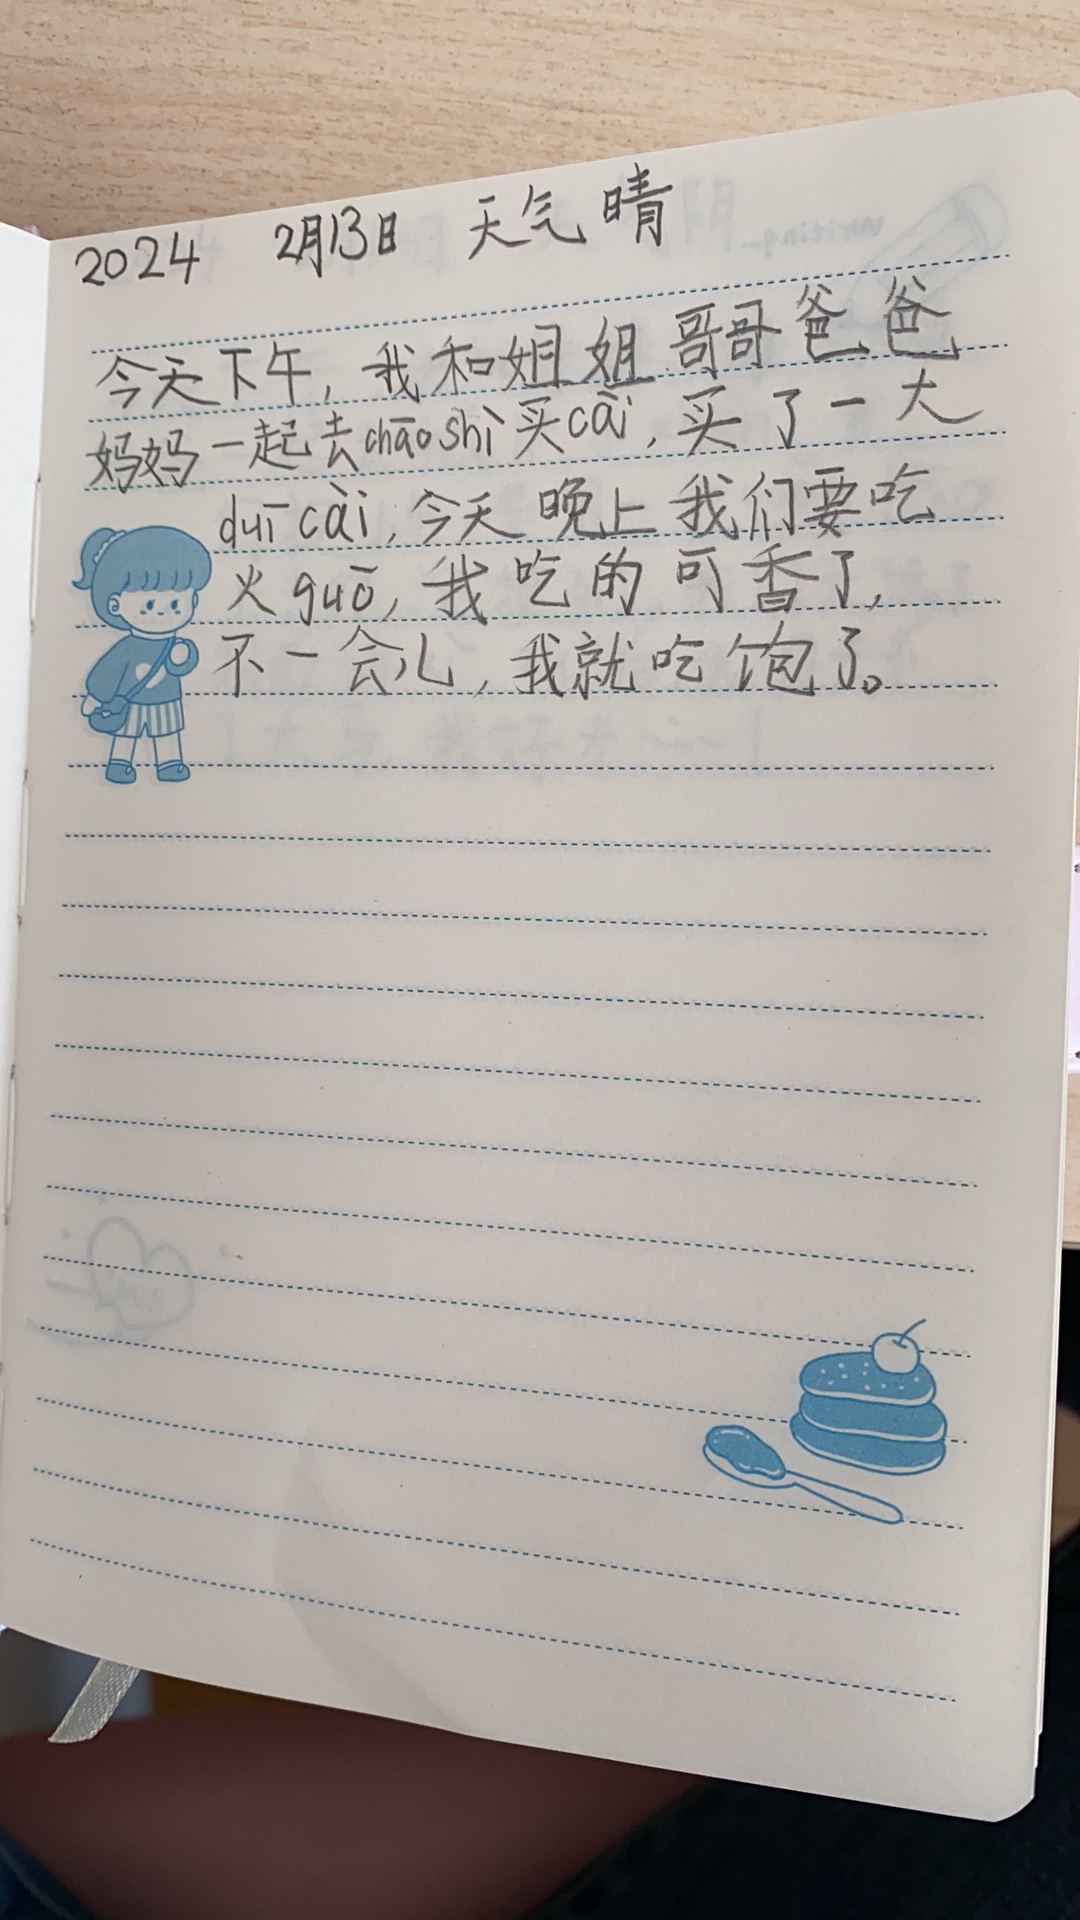 2024 2月13日 天气 晴
今天下午,我和姐姐哥哥爸爸
妈妈一起去chāo shì买cài,买了一大
duī cài,今天晚上我们要吃
火guō,我吃的可香了,
不一会儿,我就吃饱了。